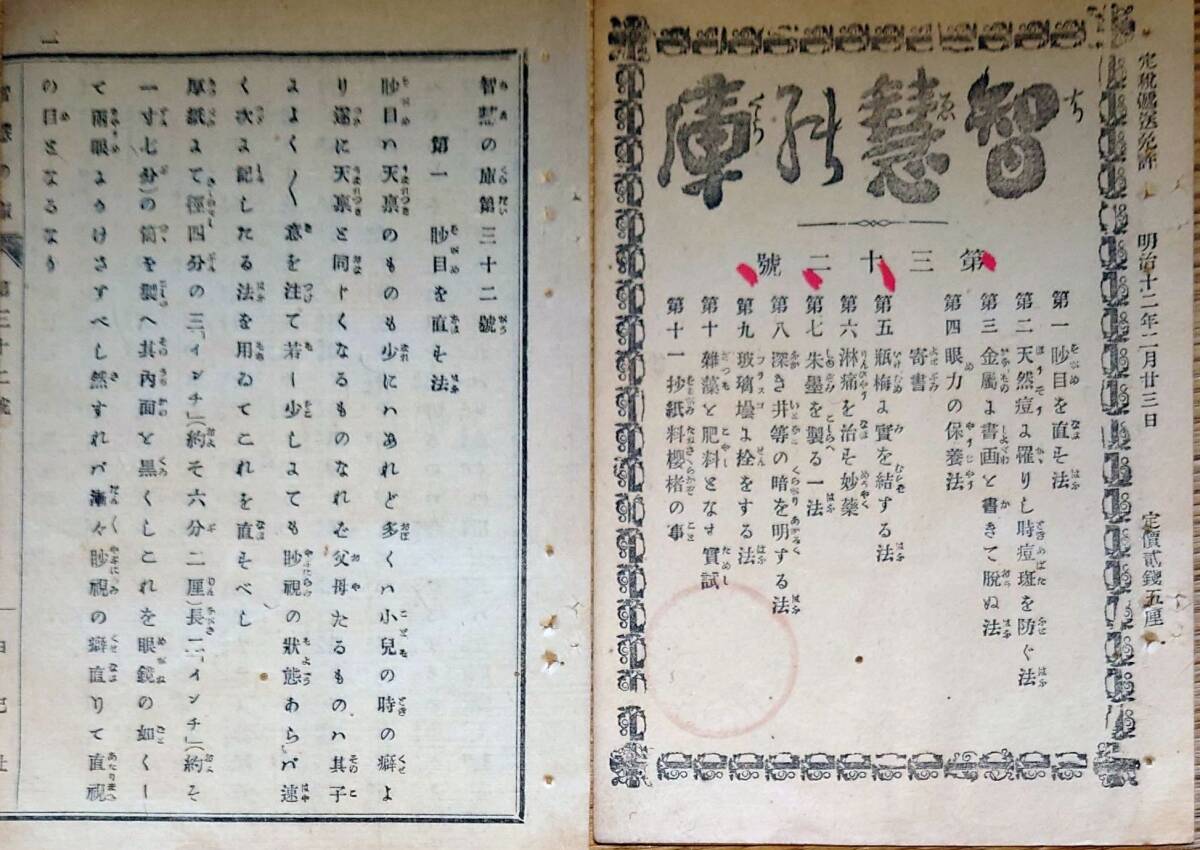 定税遞送免許 明治十二年二月廿三日 定價貳錢五厘
智慧の庫
第三十二號
第一 眇目を直す法
第二 天然痘よ罹りし時痘斑を防ぐ法
第三 金屬よ書画と書きて脱ぬ法
第四 眼力の保養法
寄書
第五 瓶梅よ實を結する法
第六 淋痛を治す妙藥
第七 朱墨を製る一法
第八 深き井等の暗を明する法
第九 玻璃壜よ栓をする法
第十 雜藻と肥料となす實試
第十一 抄紙料櫻楮の事
智慧の庫第三十二號
第一 眇目を直す法
眇目ハ天禀のものも少にハあれど多くハ小兒の時の癖よ
り遂に天禀と同じくなるものなれを父母たるものハ其子
よよく〱意を注て若し少しよても眇視の狀態あらバ速
く次よ記したる法を用ゐてこれを直すべし
厚紙よて徑四分の三「インチ」(約そ六分二厘)長二「インチ」(約そ
一寸七分)の筒を製へ其內面と黒くしこれを眼鏡の如くし
て兩眼ようけさすべし然すれバ漸々眇視の癖直りて直視
の目となるなり
一